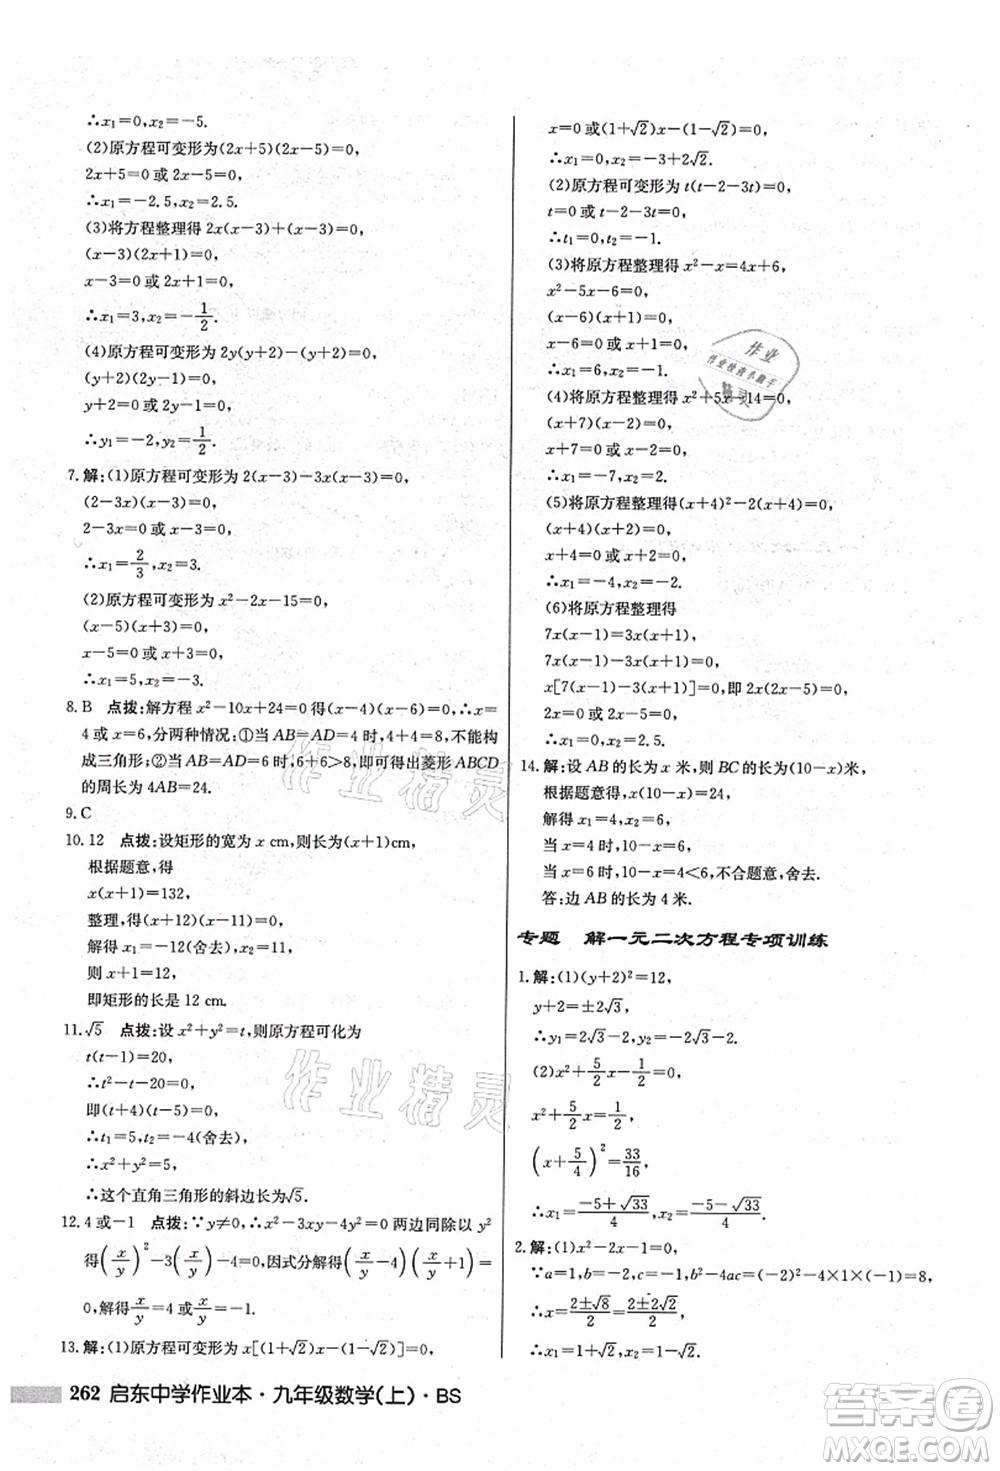 ∴x₁=0,x₂=-5.
(2)原方程可变形为(2x+5)(2x-5)=0,
2x+5=0 或 2x-5=0,
∴x₁=-2.5,x₂=2.5.
(3)将方程整理得 2x(x-3)+(x-3)=0,
(x-3)(2x+1)=0,
x-3=0 或 2x+1=0,
∴x₁=3,x₂=-1/2.
(4)原方程可变形为 2y(y+2)-(y+2)=0,
(y+2)(2y-1)=0,
y+2=0 或 2y-1=0,
∴y₁=-2,y₂=1/2.
7.解:(1)原方程可变形为 2(x-3)-3x(x-3)=0,
(2-3x)(x-3)=0,
2-3x=0 或 x-3=0,
∴x₁=2/3,x₂=3.
(2)原方程可变形为 x²-2x-15=0,
(x-5)(x+3)=0,
x-5=0 或 x+3=0,
∴x₁=5,x₂=-3.
8.B 点拨:解方程 x²-10x+24=0 得(x-4)(x-6)=0,∴x=
4 或 x=6,分两种情况:①当 AB=AD=4 时,4+4=8,不能构
成三角形;②当 AB=AD=6 时,6+6>8,即可得出菱形 ABCD
的周长为 4AB=24.
9.C
10.12 点拨:设矩形的宽为 x cm,则长为(x+1)cm,
根据题意,得
x(x+1)=132,
整理,得(x+12)(x-11)=0,
解得 x₁=-12(舍去),x₂=11,
则 x+1=12,
即矩形的长是 12 cm.
11.√5 点拨:设 x²+y²=t,则原方程可化为
t(t-1)=20,
∴t²-t-20=0,
即(t+4)(t-5)=0,
∴t₁=5,t₂=-4(舍去),
∴x²+y²=5,
∴这个直角三角形的斜边长为√5.
12.4 或-1 点拨:∵y≠0,∴x²-3xy-4y²=0 两边同除以 y²
得(x/y)²-3(x/y)-4=0,因式分解得(x/y-4)(x/y+1)=
0,解得x/y=4 或x/y=-1.
13.解:(1)原方程可变形为 x[(1+√2)x-(1-√2)]=0,
262 启东中学作业本·九年级数学(上)·BS
x=0 或(1+√2)x-(1-√2)=0,
∴x₁=0,x₂=-3+2√2.
(2)原方程可变形为 t(t-2-3t)=0,
t=0 或 t-2-3t=0,
∴t₁=0,t₂=-1.
(3)将原方程整理得 x²-x=4x+6,
x²-5x-6=0,
(x-6)(x+1)=0,
x-6=0 或 x+1=0,
∴x₁=6,x₂=-1.
(4)将原方程整理得 x²+5x-14=0,
(x+7)(x-2)=0,
x+7=0 或 x-2=0,
∴x₁=-7,x₂=2.
(5)将原方程整理得(x+4)²-2(x+4)=0,
(x+4)(x+2)=0,
x+4=0 或 x+2=0,
∴x₁=-4,x₂=-2.
(6)将原方程整理得
7x(x-1)=3x(x+1),
7x(x-1)-3x(x+1)=0,
x[7(x-1)-3(x+1)]=0,即 2x(2x-5)=0,
2x=0 或 2x-5=0,
∴x₁=0,x₂=2.5.
14.解:设 AB 的长为 x 米,则 BC 的长为(10-x)米,
根据题意得,x(10-x)=24,
解得 x₁=4,x₂=6,
当 x=4 时,10-x=6,
当 x=6 时,10-x=4<6,不合题意,舍去.
答:边 AB 的长为 4 米.
专题 解一元二次方程专项训练
1.解:(1)(y+2)²=12,
y+2=±2√3,
∴y₁=2√3-2,y₂=-2√3-2.
(2)x²+5/2x-1/2=0,
x²+5/2x=1/2,
(x+5/4)²=33/16,
∴x₁=(-5+√33)/4,x₂=(-5-√33)/4.
2.解:(1)x²-2x-1=0,
∵a=1,b=-2,c=-1,b²-4ac=(-2)²-4×1×(-1)=8,
∴x=(2±√8)/2=(2±2√2)/2,
作业精灵
作业精灵
作业
答案圈
MXQE.COM